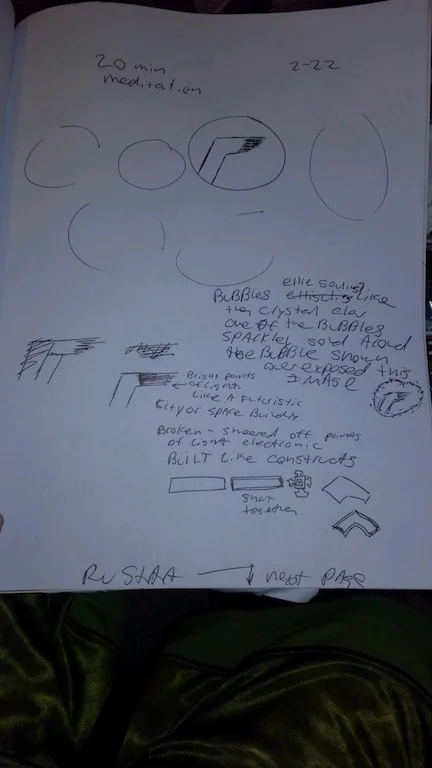 20 min
meditation
2-22
BUBBLES like
the crystal clay
one of the BUBBLES
SPARKled
the BUBBLE shown
over exposed this
IMAGE
Bright points
of light
Like A Futuristic
City or SPACE Building
Broken - sheered off points
of Light electronic
BUILT Like constructs
snap
together
next PAGE